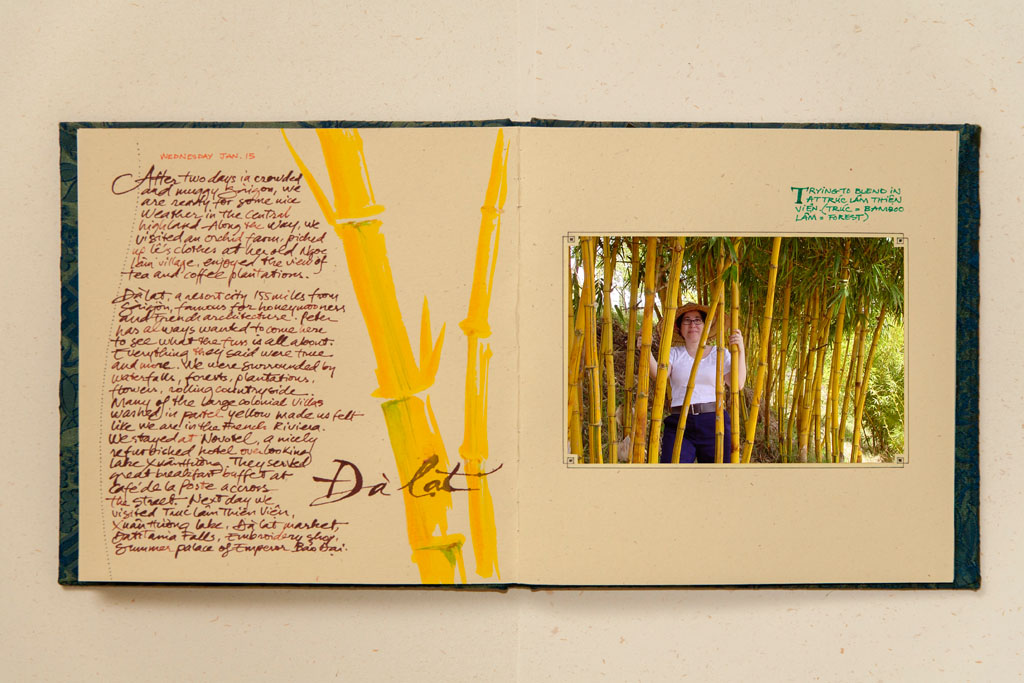 WEDNESDAY JAN. 15
After two days in crowded
and muggy Saigon, we
are ready for some nice
weather in the central
highland. Along the way, we
visited an orchid farm, picked
up lê's clothes at her old Ngọc
Lâm village, enjoyed the view of
tea and coffee plantations.
Đà lạt, a resort city 155 miles from
Saigon, famous for honeymooners
and French architecture. Peter
has always wanted to come here
to see what the fuss is all about.
Everything they said were true
and more. We were surrounded by
waterfalls, forests, plantations,
flowers, rolling countryside.
Many of the large colonial villas
washed in pastel yellow made us felt
like we are in the French Riviera.
We stayed at Novotel, a nicely
refurbished hotel overlooking
lake Xuân Hương. They served
great breakfast buffet at
café de la poste accross
the street. Next day we
visited Trúc Lâm Thiền Viện,
Xuân Hương lake, Đà lạt market,
Datitania Falls, Embroidery shop,
Summer palace of Emperor Bảo Đại.
Đà lạt
TRYING TO BLEND IN
AT TRÚC LÂM THIỀN
VIỆN. (TRÚC = BAMBOO
LÂM = FOREST)